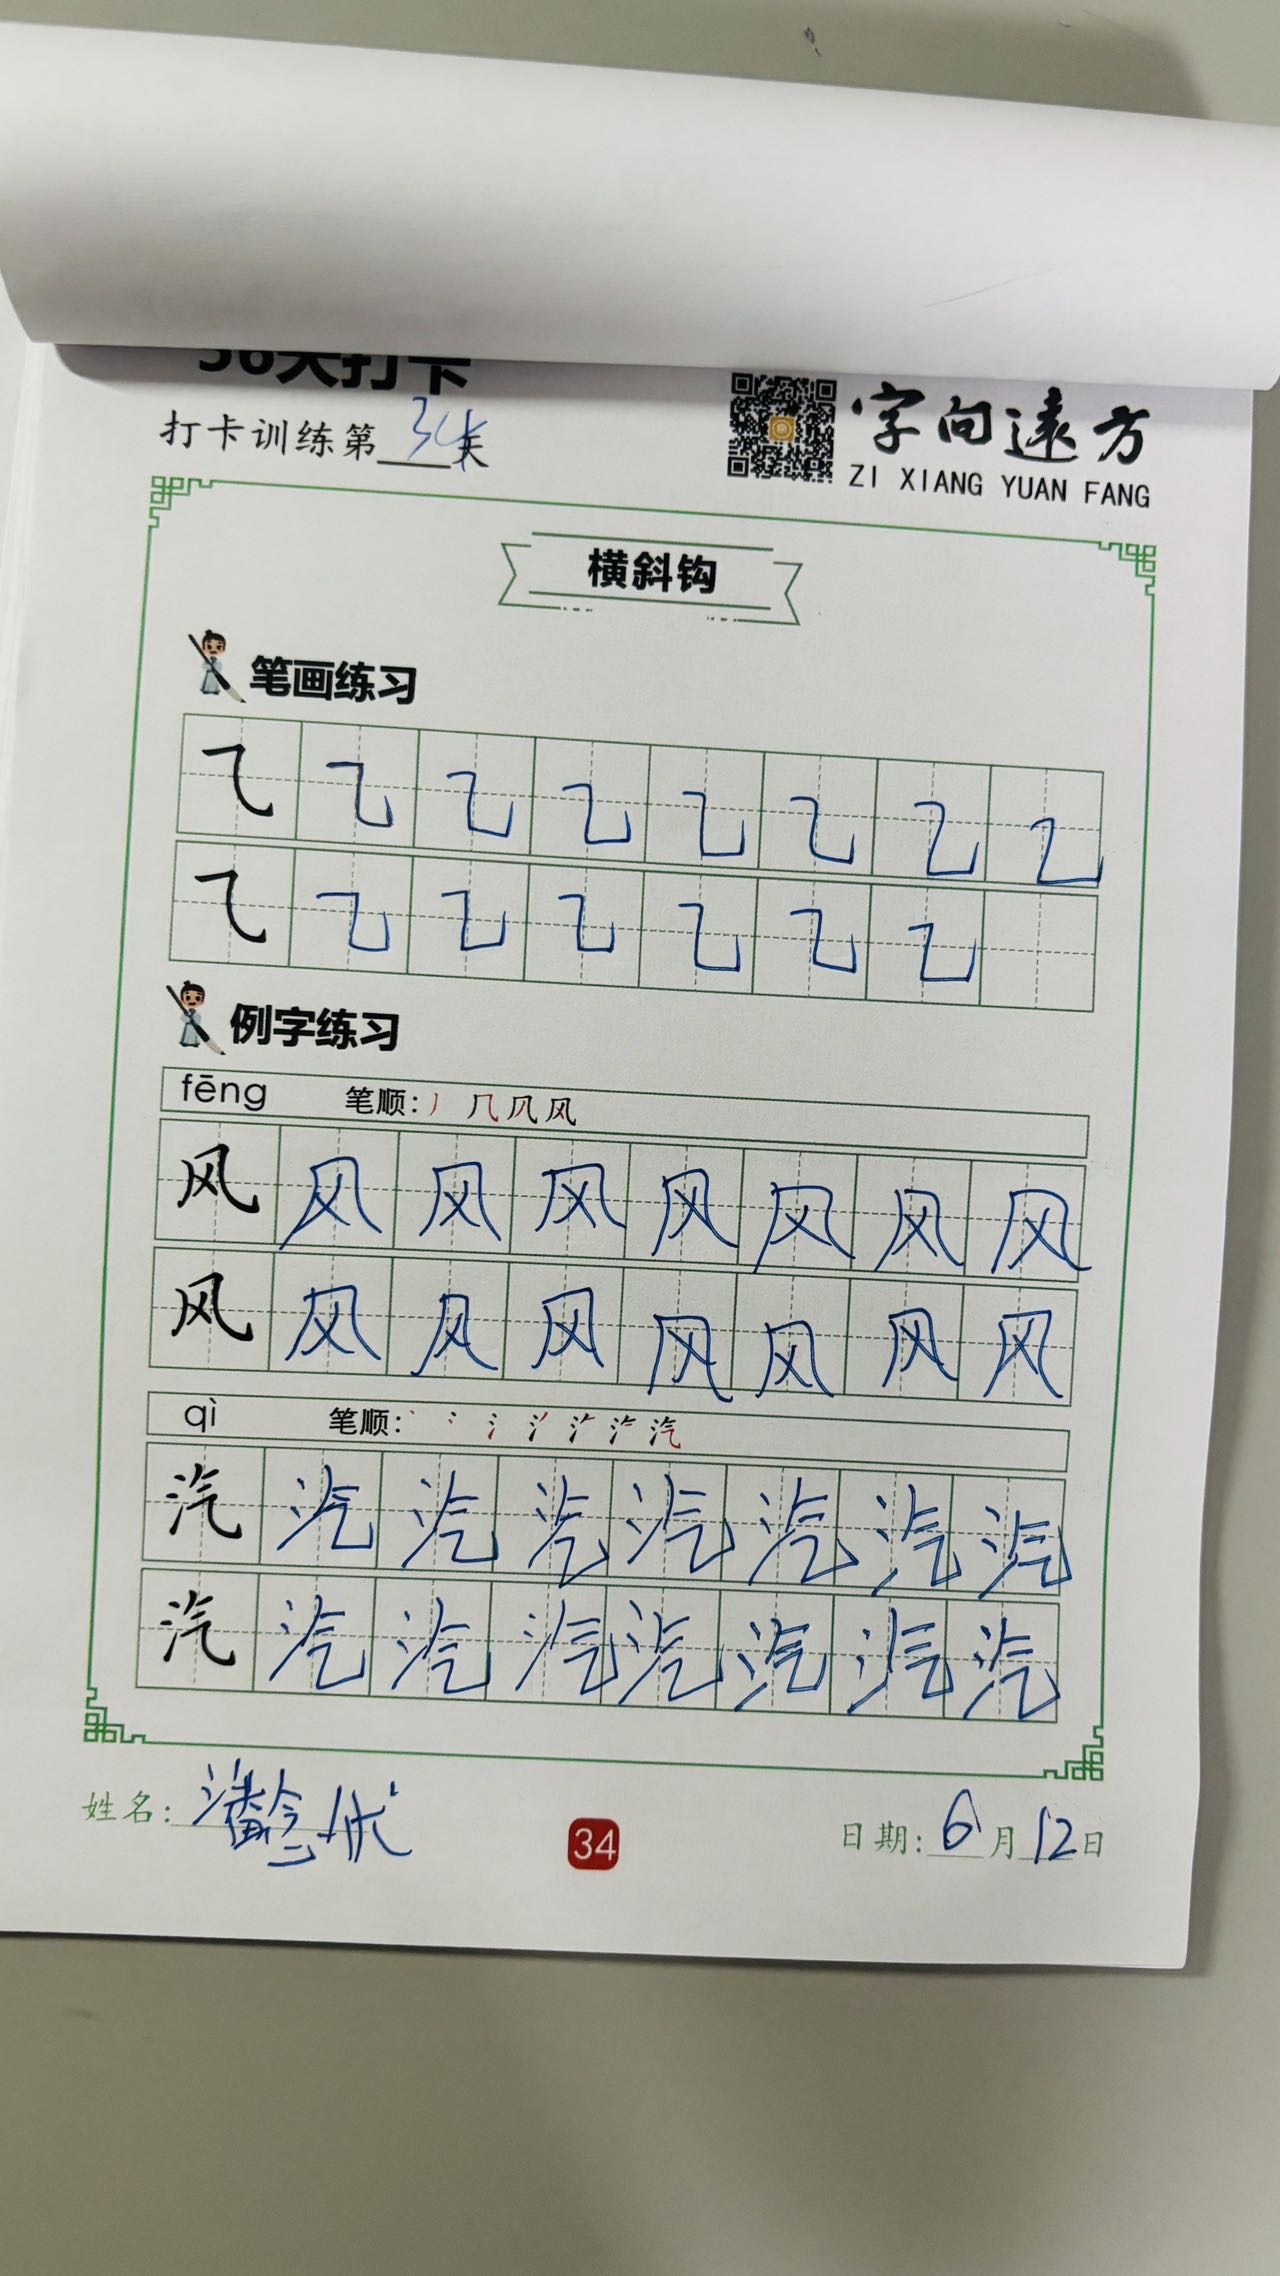 36天打卡
打卡训练第34天
字向遠方
ZI XIANG YUAN FANG
横斜钩
笔画练习
⺄ ⺄ ⺄ ⺄ ⺄ ⺄ ⺄ ⺄
⺄ ⺄ ⺄ ⺄ ⺄ ⺄ ⺄
例字练习
fēng 笔顺: 丿 几 风
风 风 风 风 风 风 风 风
风 风 风 风 风 风 风 风
qì 笔顺: 丶 冫 氵 汽
汽 汽 汽 汽 汽 汽 汽 汽
汽 汽 汽 汽 汽 汽 汽 汽
姓名: 潘
34
日期: 6月12日